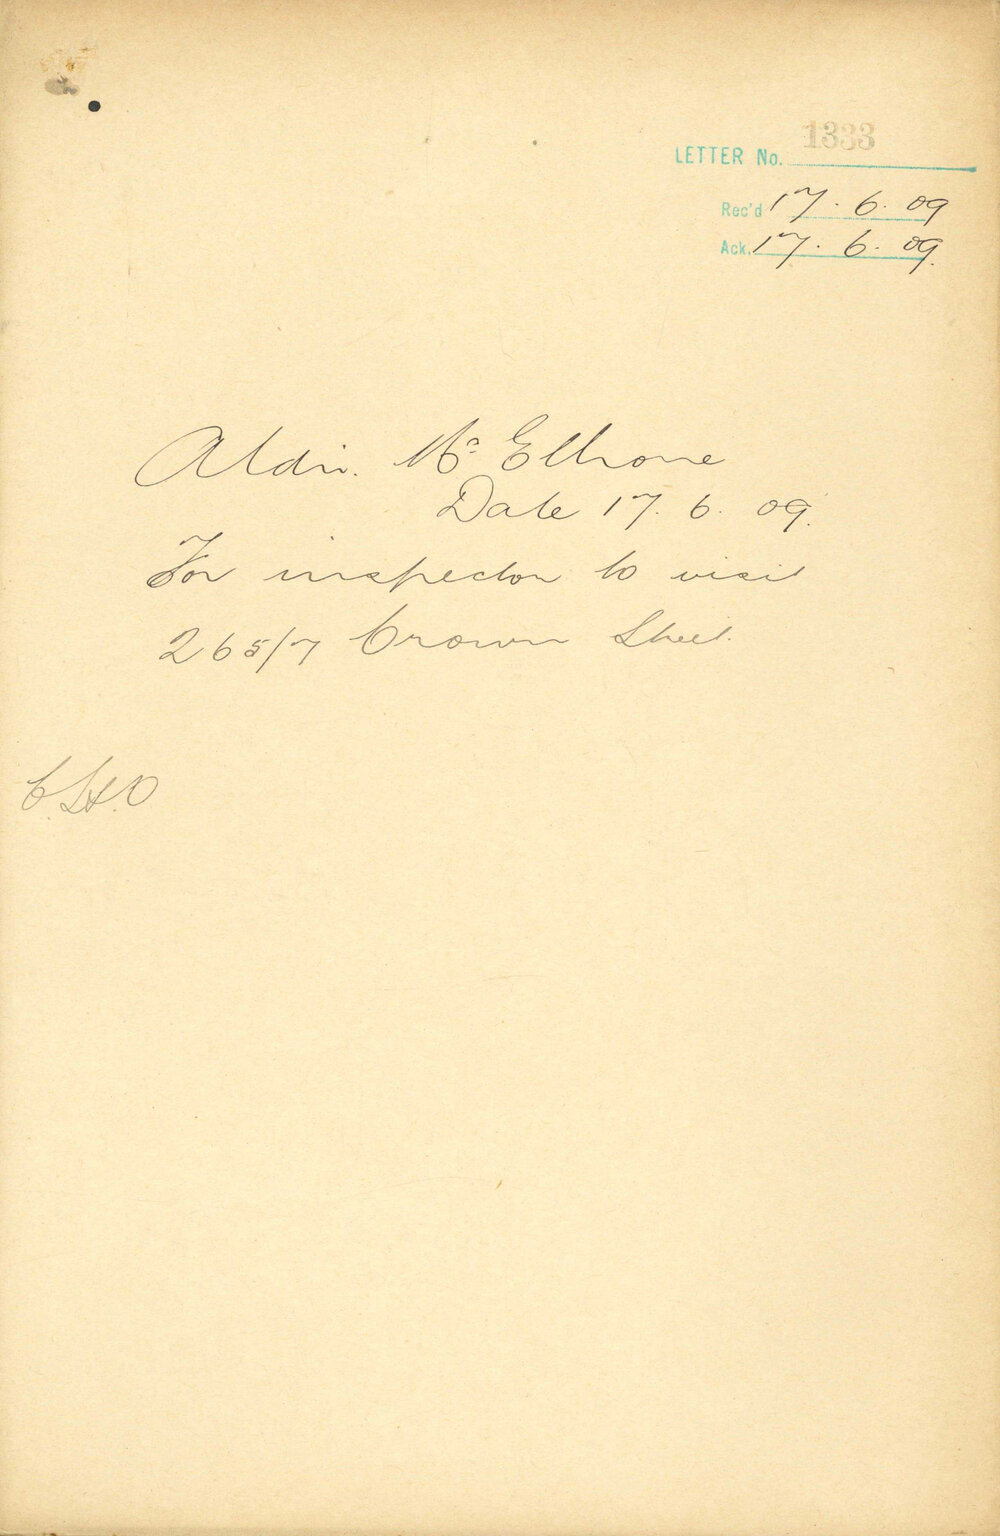 LETTER No. 1333
Rec'd 17.6.09
Ack. 17.6.09.
Aldn. Mc Elhone
Date 17.6.09.
For inspector to visit
265/7 Crown Street.
C.S.H.O